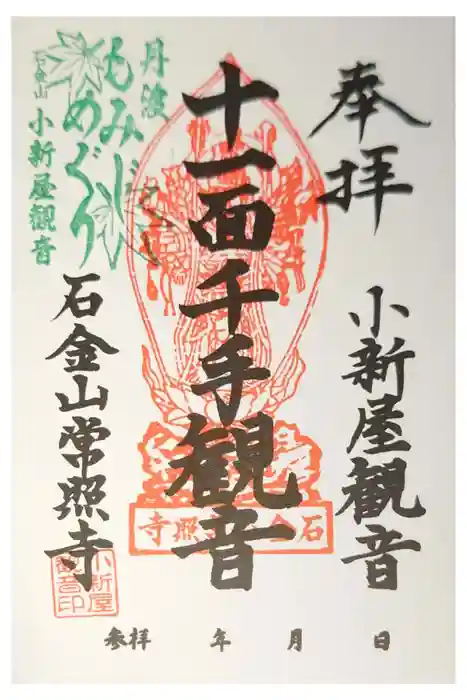 奉拝
小新屋観音
十一面千手観音
石金山常照寺
丹波
もみじ
めぐり
石金山
小新屋観音
石金山常照寺
小新屋
観音印
参拝 年 月 日